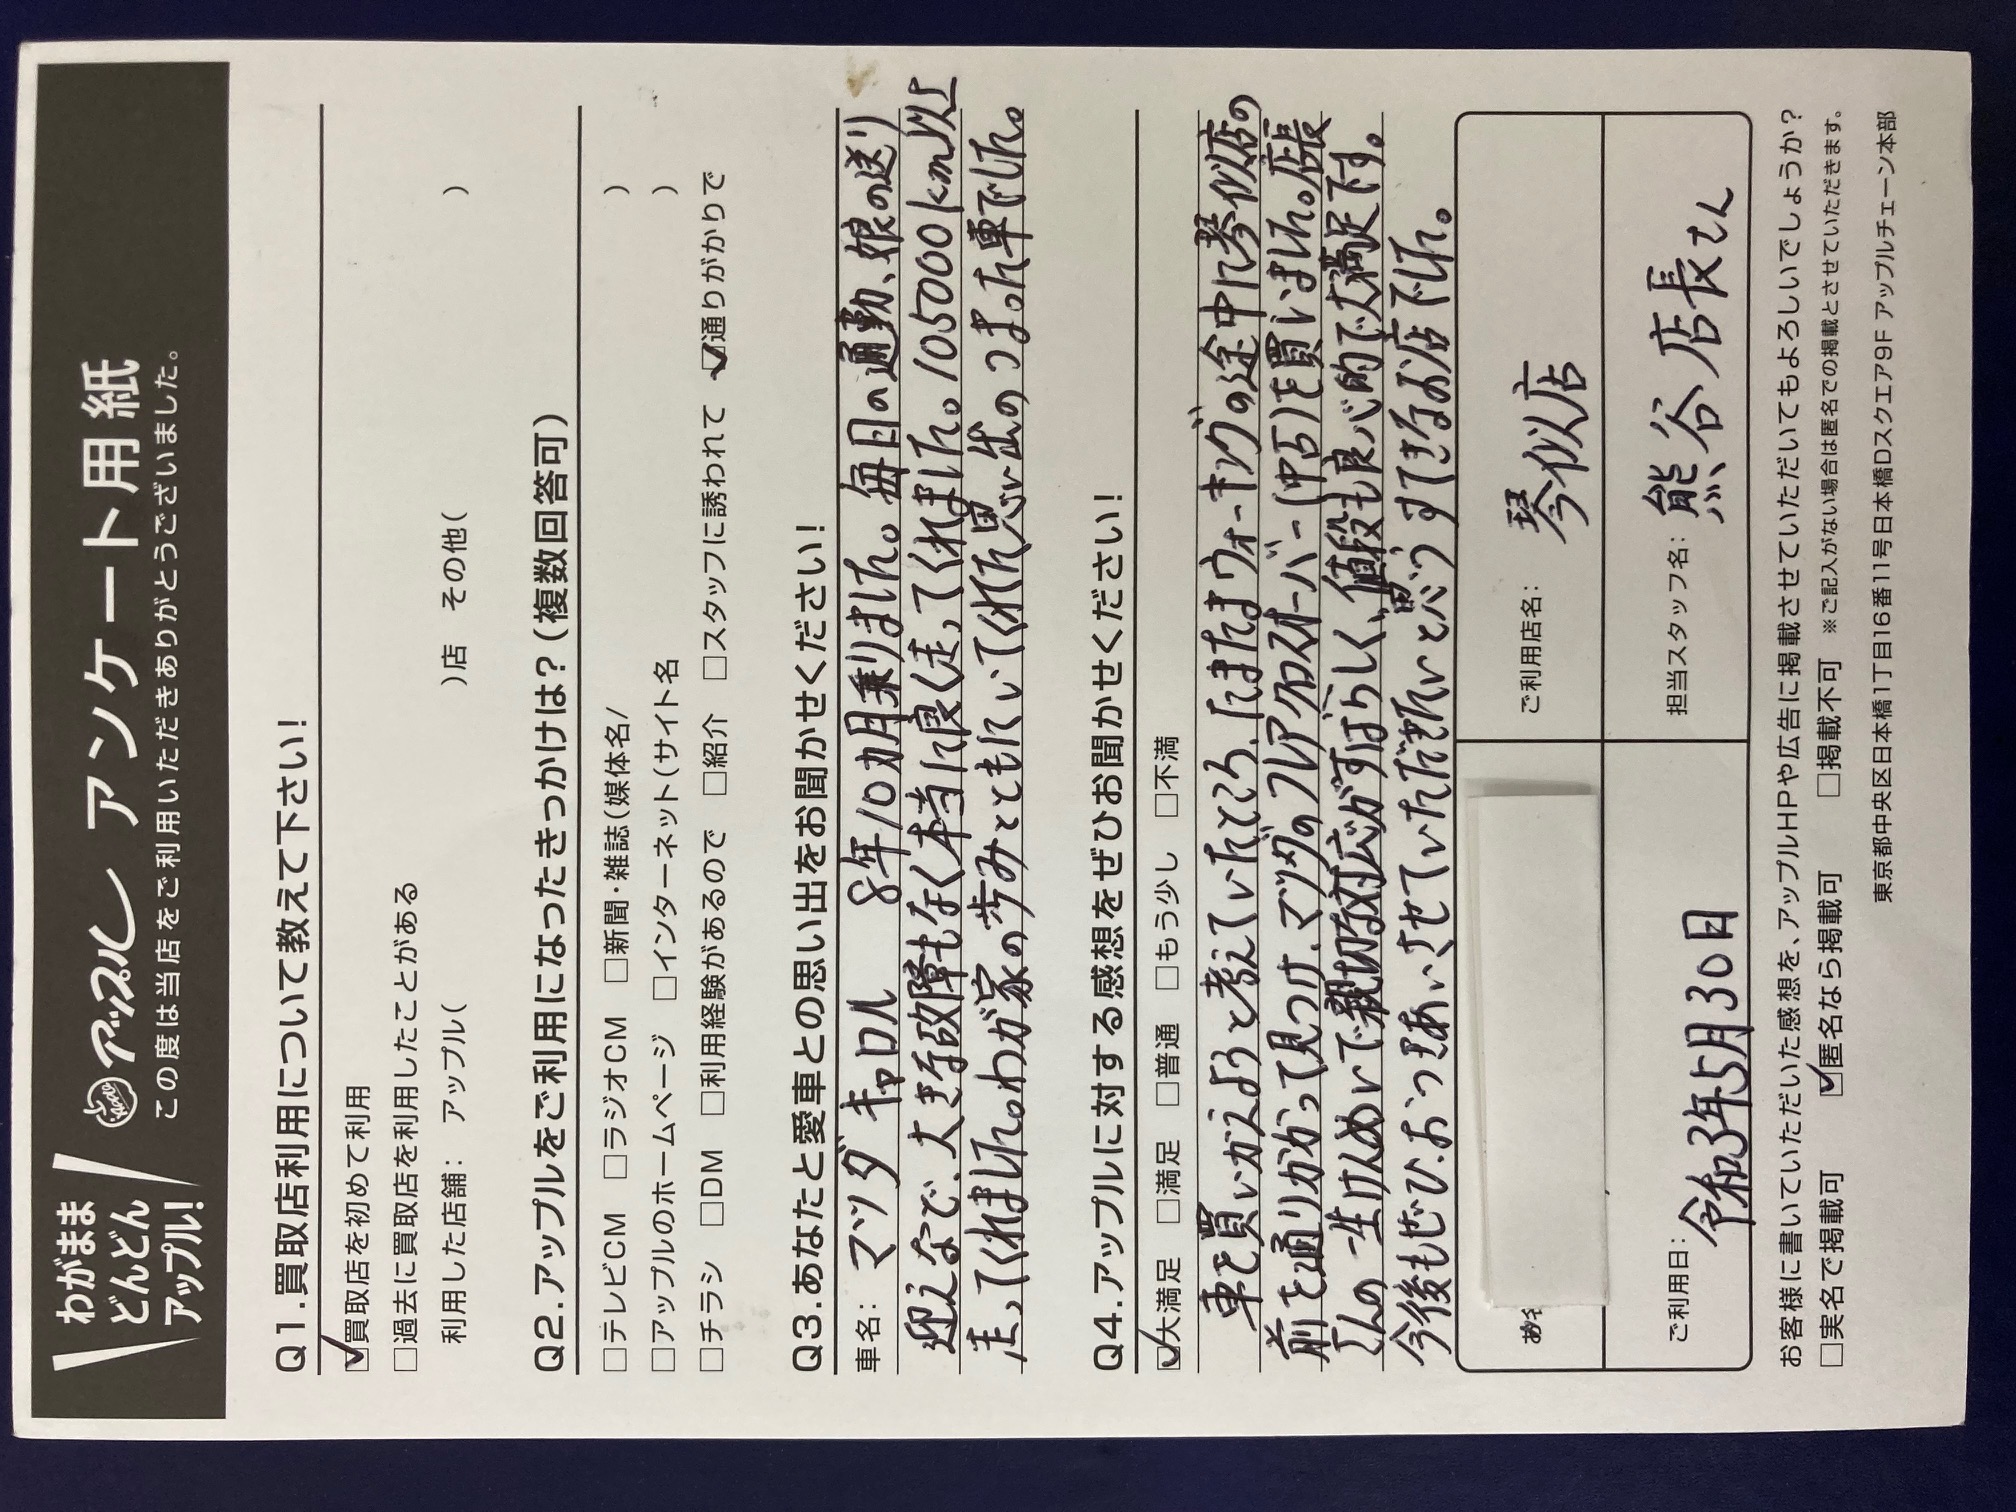 わがまま
どんどん
アップル!
Apple アップル アンケート用紙
この度は当店をご利用いただきありがとうございました。
Q1.買取店利用について教えて下さい!
☑買取店を初めて利用
□過去に買取店を利用したことがある
利用した店舗: アップル( )店 その他( )
Q2.アップルをご利用になったきっかけは?(複数回答可)
□テレビCM □ラジオCM □新聞・雑誌(媒体名/ )
□アップルのホームページ □インターネット(サイト名 )
□チラシ □DM □利用経験があるので □紹介 □スタッフに誘われて ☑通りがかりで
Q3.あなたと愛車との思い出をお聞かせください!
車名: マツダ キャロル 8年10カ月乗りました。毎日の通勤、娘の送り
迎えなどで、大きな故障もなく本当に良く走ってくれました。105000km以上
走ってくれました。わが家の歩みとともにいてくれた思い出のつまった車でした。
Q4.アップルに対する感想をぜひお聞かせください!
☑大満足 □満足 □普通 □もう少し □不満
車を買いかえようと考えていたところ、たまたまウォーキングの途中に琴似店の
前を通りかかって見つけ、マツダのフレアクロスオーバー(中古)を買いました。店長
さんの一生けんめいで親切な対応がすばらしく、値段も良心的で大満足です。
今後もぜひ、おつきあいさせていただきたいと思うすてきなお店でした。
ご利用店名: 琴似店
ご利用日: 令和3年5月30日
担当スタッフ名: 熊谷店長さん
お客様に書いていただいた感想を、アップルHPや広告に掲載させていただいてもよろしいでしょうか?
□実名で掲載可 ☑匿名なら掲載可 □掲載不可 ※ご記入がない場合は匿名での掲載とさせていただきます。
東京都中央区日本橋1丁目16番11号日本橋Dスクエア9F アップルチェーン本部